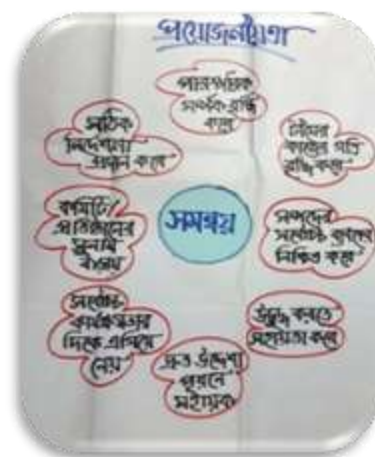 প্রয়োজনীয়তা
পারস্পরিক
সম্পর্ক বৃদ্ধি
করে
টিমের
কাজের গতি
বৃদ্ধি করে
সম্পদের
সর্বোচ্চ ব্যবহার
নিশ্চিত করে
উদ্বুদ্ধ করতে
সহায়তা করে
দ্রুত উদ্দেশ্য
পূরনে
সহায়ক
সর্বোচ্চ
কার্যক্ষমতার
দিকে এগিয়ে
নেয়
কমিটি/
প্রতিষ্ঠানের
সুনাম
বাড়ায়
সঠিক
নির্দেশনা
প্রদান করে
সমন্বয়